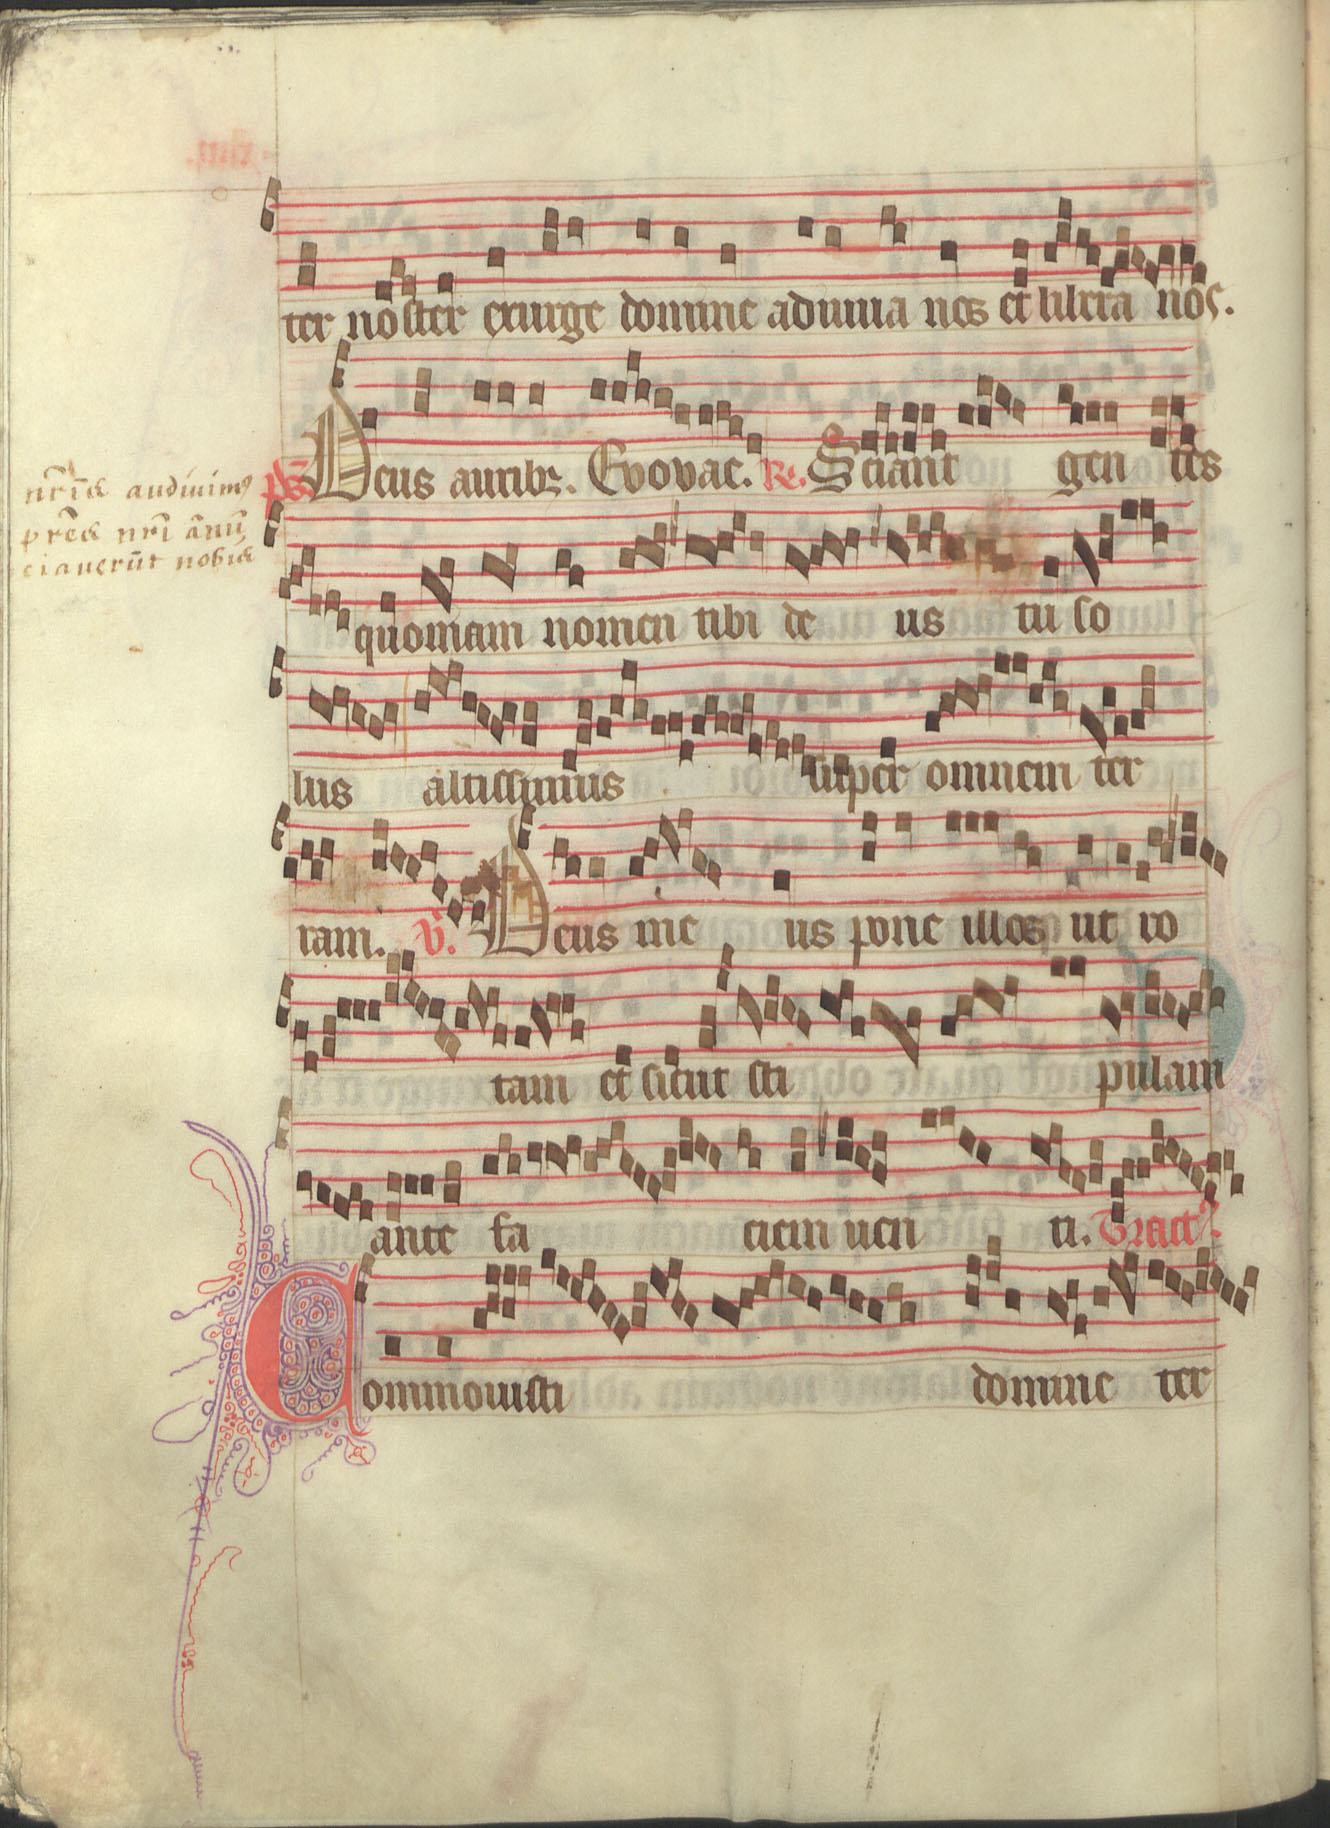 ter noster exurge domine adiuua nos et libera nos.
ps. Deus auribꝫ. Evovae. Re. Sciant gen tes
nr̄is audiuimꝰ
pr̄es nr̄i ānū
ciauerūt nobis
quoniam nomen tibi de us tu so
lus altissimus super omnem ter
ram. v̄. Deus me us pone illos ut ro
tam et sicut sti pulam
ante fa ciem uen ti. Tract
Commouisti domine ter